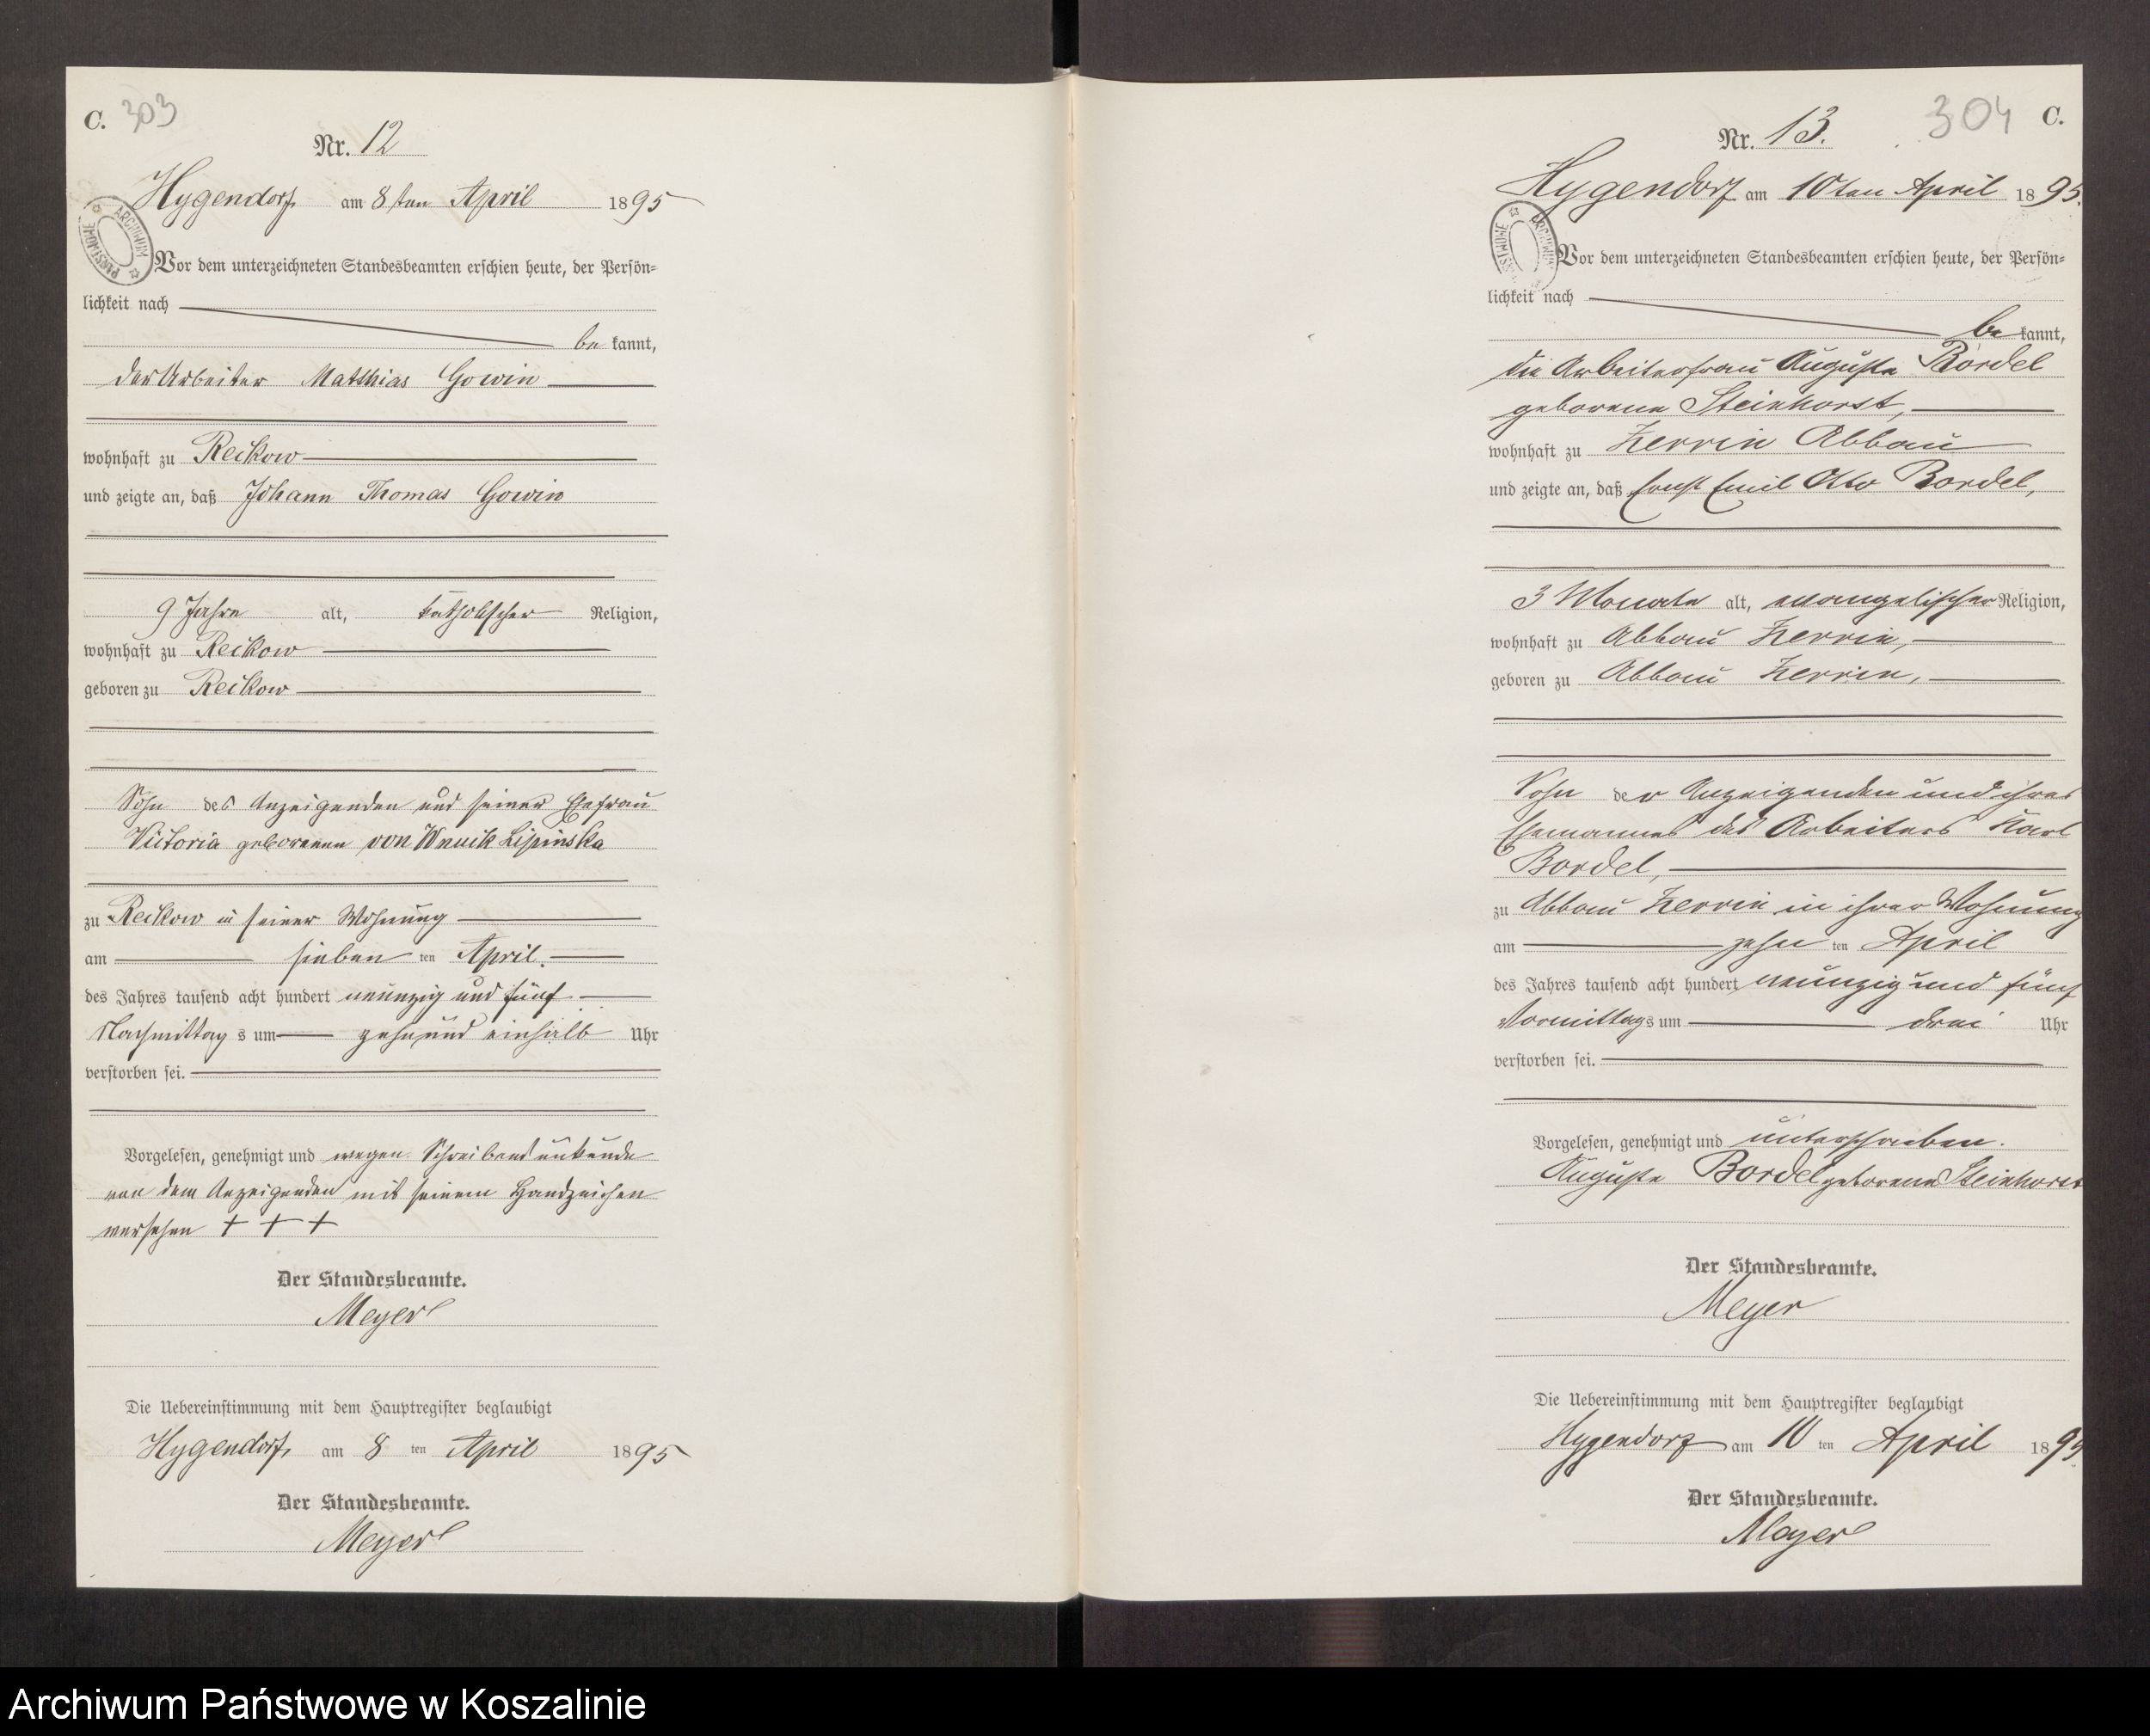 C. 303
Nr. 12
Hygendorf, am 8ten April 1895
ARCHIWUM PAŃSTWOWE
Vor dem unterzeichneten Standesbeamten erschien heute, der Persön=
lichkeit nach
be kannt,
der Arbeiter Matthias Gowin
wohnhaft zu Reckow
und zeigte an, daß Johann Thomas Gowin
9 Jahre alt, katholischer Religion,
wohnhaft zu Reckow
geboren zu Reckow
Sohn des Anzeigenden und seiner Ehefrau
Victoria geborenen von Wnuck Lipinska
zu Reckow in seiner Wohnung
am sieben ten April.
des Jahres tausend acht hundert neunzig und fünf
Nachmittag s um zehn und einhalb Uhr
verstorben sei.
Vorgelesen, genehmigt und wegen Schreibensunkunde
von dem Anzeigenden mit seinem Handzeichen
versehen + + +
Der Standesbeamte.
Meyer
Die Uebereinstimmung mit dem Hauptregister beglaubigt
Hygendorf, am 8 ten April 1895
Der Standesbeamte.
Meyer
304 C.
Nr. 13.
Hygendorf am 10ten April 1895.
ARCHIWUM PAŃSTWOWE
Vor dem unterzeichneten Standesbeamten erschien heute, der Persön=
lichkeit nach
be kannt,
die Arbeiterfrau Auguste Bordel
geborene Steinhorst,
wohnhaft zu Zerrin Abbau
und zeigte an, daß Ernst Emil Otto Bordel,
3 Monate alt, evangelischer Religion,
wohnhaft zu Abbau Zerrin,
geboren zu Abbau Zerrin,
Sohn der Anzeigenden und ihres
Ehemannes des Arbeiters Karl
Bordel,
zu Abbau Zerrin in ihrer Wohnung
am zehn ten April
des Jahres tausend acht hundert neunzig und fünf
Vormittags um drei Uhr
verstorben sei.
Vorgelesen, genehmigt und unterschrieben.
Auguste Bordel geborene Steinhorst
Der Standesbeamte.
Meyer
Die Uebereinstimmung mit dem Hauptregister beglaubigt
Hygendorf am 10 ten April 1895
Der Standesbeamte.
Meyer
Archiwum Państwowe w Koszalinie